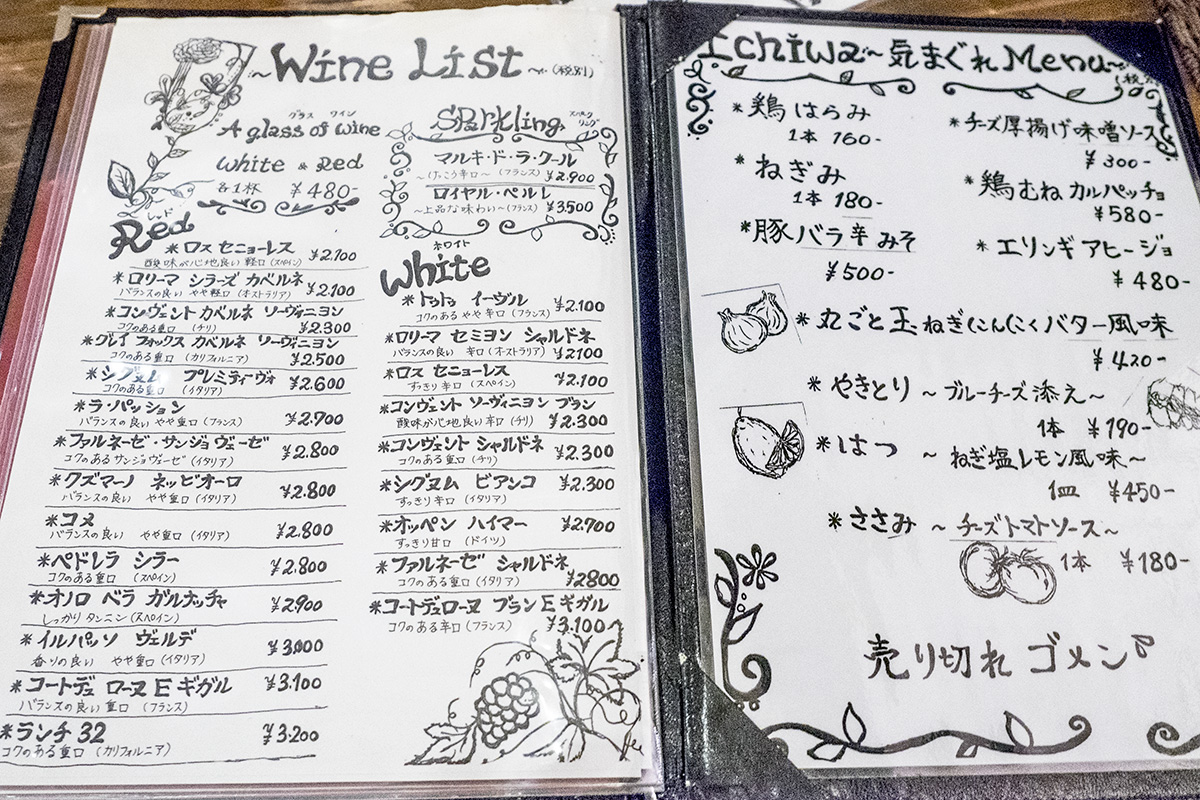 ~Wine List~ (税別)
グラス ワイン
A glass of wine
White & Red
各1杯 ¥480-
スパークリング
Sparkling
マルキ・ド・ラ・クール
~けっこう辛口~(フランス) ¥2.900
ロイヤル・ペルレ
~上品な味わい~(フランス) ¥3.500
レッド
Red
*ロス セニョーレス
酸味が心地良い軽口(スペイン) ¥2.100
*ロリーマ シラーズ カベルネ
バランスの良い やや軽口(オーストラリア) ¥2.100
*コンヴェント カベルネ ソーヴィニヨン
コクのある重口 (チリ) ¥2.300
*グレイ フォックス カベルネ ソーヴィニヨン
コクのある重口 (カリフォルニア) ¥2.500
*シグヌム プレミティーヴォ
コクのある重口 (イタリア) ¥2.600
*ラ・パッション
バランスの良い やや重口(フランス) ¥2.700
*ファルネーゼ・サンジョヴェーゼ
コクのあるサンジョヴェーゼ(イタリア) ¥2.800
*クズマーノ ネッビオーロ
バランスの良い やや重口(イタリア) ¥2.800
*コメ
バランスの良い やや重口 (イタリア) ¥2.800
*ペドレラ シラー
コクのある重口 (スペイン) ¥2.800
*オノロ ベラ ガルナッチャ
しっかりタンニン(スペイン) ¥2.900
*イルパッソ ヴェルデ
香りの良い やや重口(イタリア) ¥3.000
*コートデュ ローヌ E ギガル
バランスの良い重口 (フランス) ¥3.100
*ランチ 32
コクのある重口 (カリフォルニア) ¥3.200
ホワイト
White
*トゥトゥ イーヴル
コクのある やや辛口(フランス) ¥2.100
*ロリーマ セミヨン シャルドネ
バランスの良い 辛口(オーストラリア) ¥2100
*ロス セニョーレス
すっきり辛口(スペイン) ¥2.100
*コンヴェント ソーヴィニヨン ブラン
酸味が心地良い辛口(チリ) ¥2.300
*コンヴェント シャルドネ
コクのある辛口(チリ) ¥2.300
*シグヌム ビアンコ
すっきり辛口(イタリア) ¥2.300
*オッペン ハイマー
すっきり甘口(ドイツ) ¥2.700
*ファルネーゼ シャルドネ
コクのある辛口(イタリア) ¥2800
*コートデュローヌ ブラン E ギガル
コクのある辛口(フランス) ¥3.100
Ichiwa~気まぐれMenu~
*鶏はらみ
1本 160-
*ねぎみ
1本 180-
*豚バラ辛みそ
¥500-
*チーズ厚揚げ味噌ソース
¥300-
*鶏むねカルパッチョ
¥580-
*エリンギアヒージョ
¥480-
*丸ごと玉ねぎにんにくバター風味
¥420-
*やきとり ~ブルーチーズ添え~
1本 ¥190-
*はつ ~ねぎ塩レモン風味~
1皿 ¥450-
*ささみ ~チーズトマトソース~
1本 ¥180-
売り切れゴメン